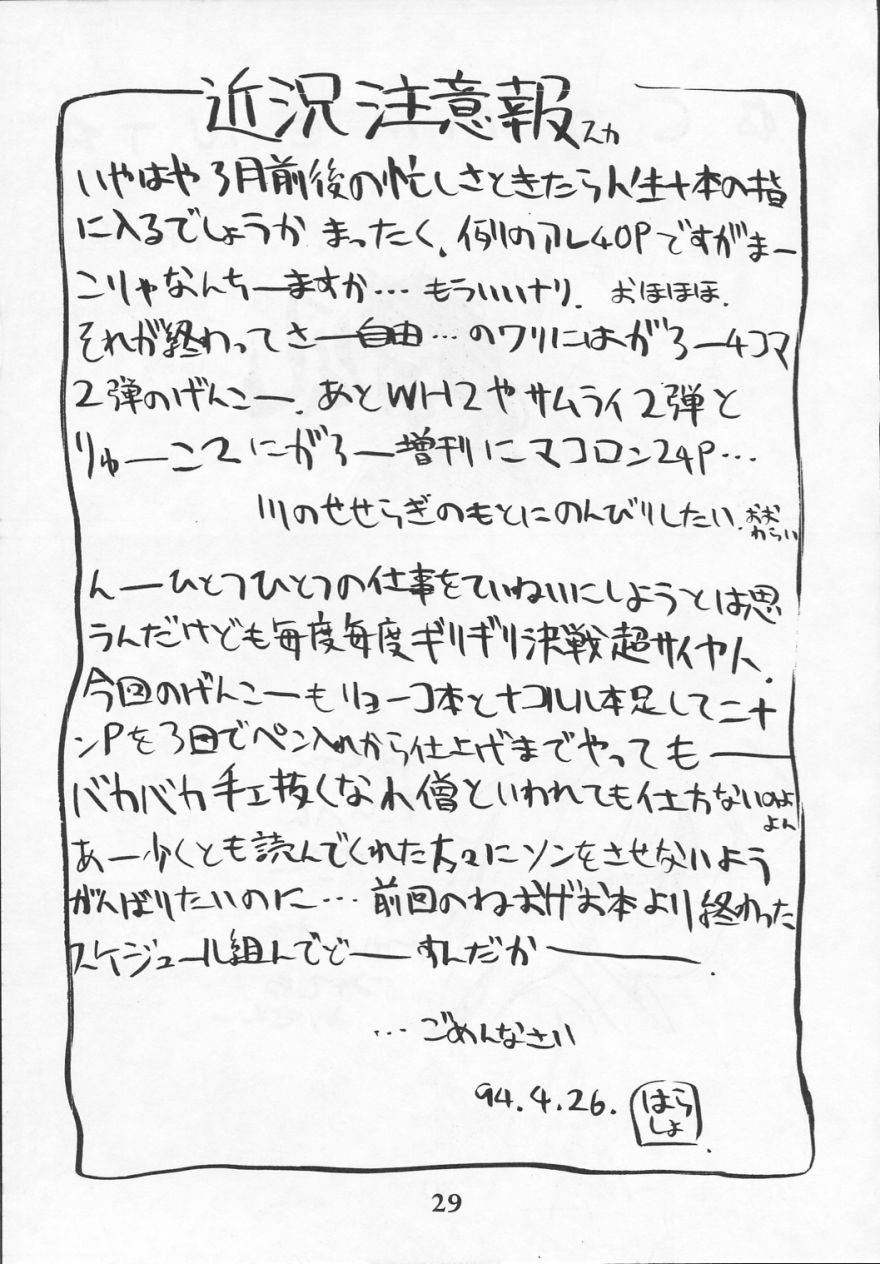 近況注意報スカ
いやはや3月前後の忙しさときたら人生十本の指
に入るでしょうか まったく、例のアレ40Pですがまー
こりゃなんちーますか… もういいナリ. おほほほ.
それが終わってさー自由…のワリにはがろー4コマ
2弾のげんこー. あとWH2やサムライ2弾と
りゅーこ2にがろー増刊にマコロン24P…
川のせせらぎのもとにのんびりしたい. おお
わらい
んーひとつひとつの仕事をていねいにしようとは思
うんだけども毎度毎度ギリギリ決戦超サイヤ人.
今回のげんこーもリョーコ本とナコルル本足して二十
ンPを3日でペン入れから仕上げまでやってもーー
バカバカ手ェ抜くなれ僧といわれても仕方ないのよ
よん
あー少くとも読んでくれた方々にソンをさせないよう
がんばりたいのに… 前回のねおげお本より終わった
スケジュール組んでどーーすんだかーーー.
…ごめんなさい
94.4.26. はら
しょ
29